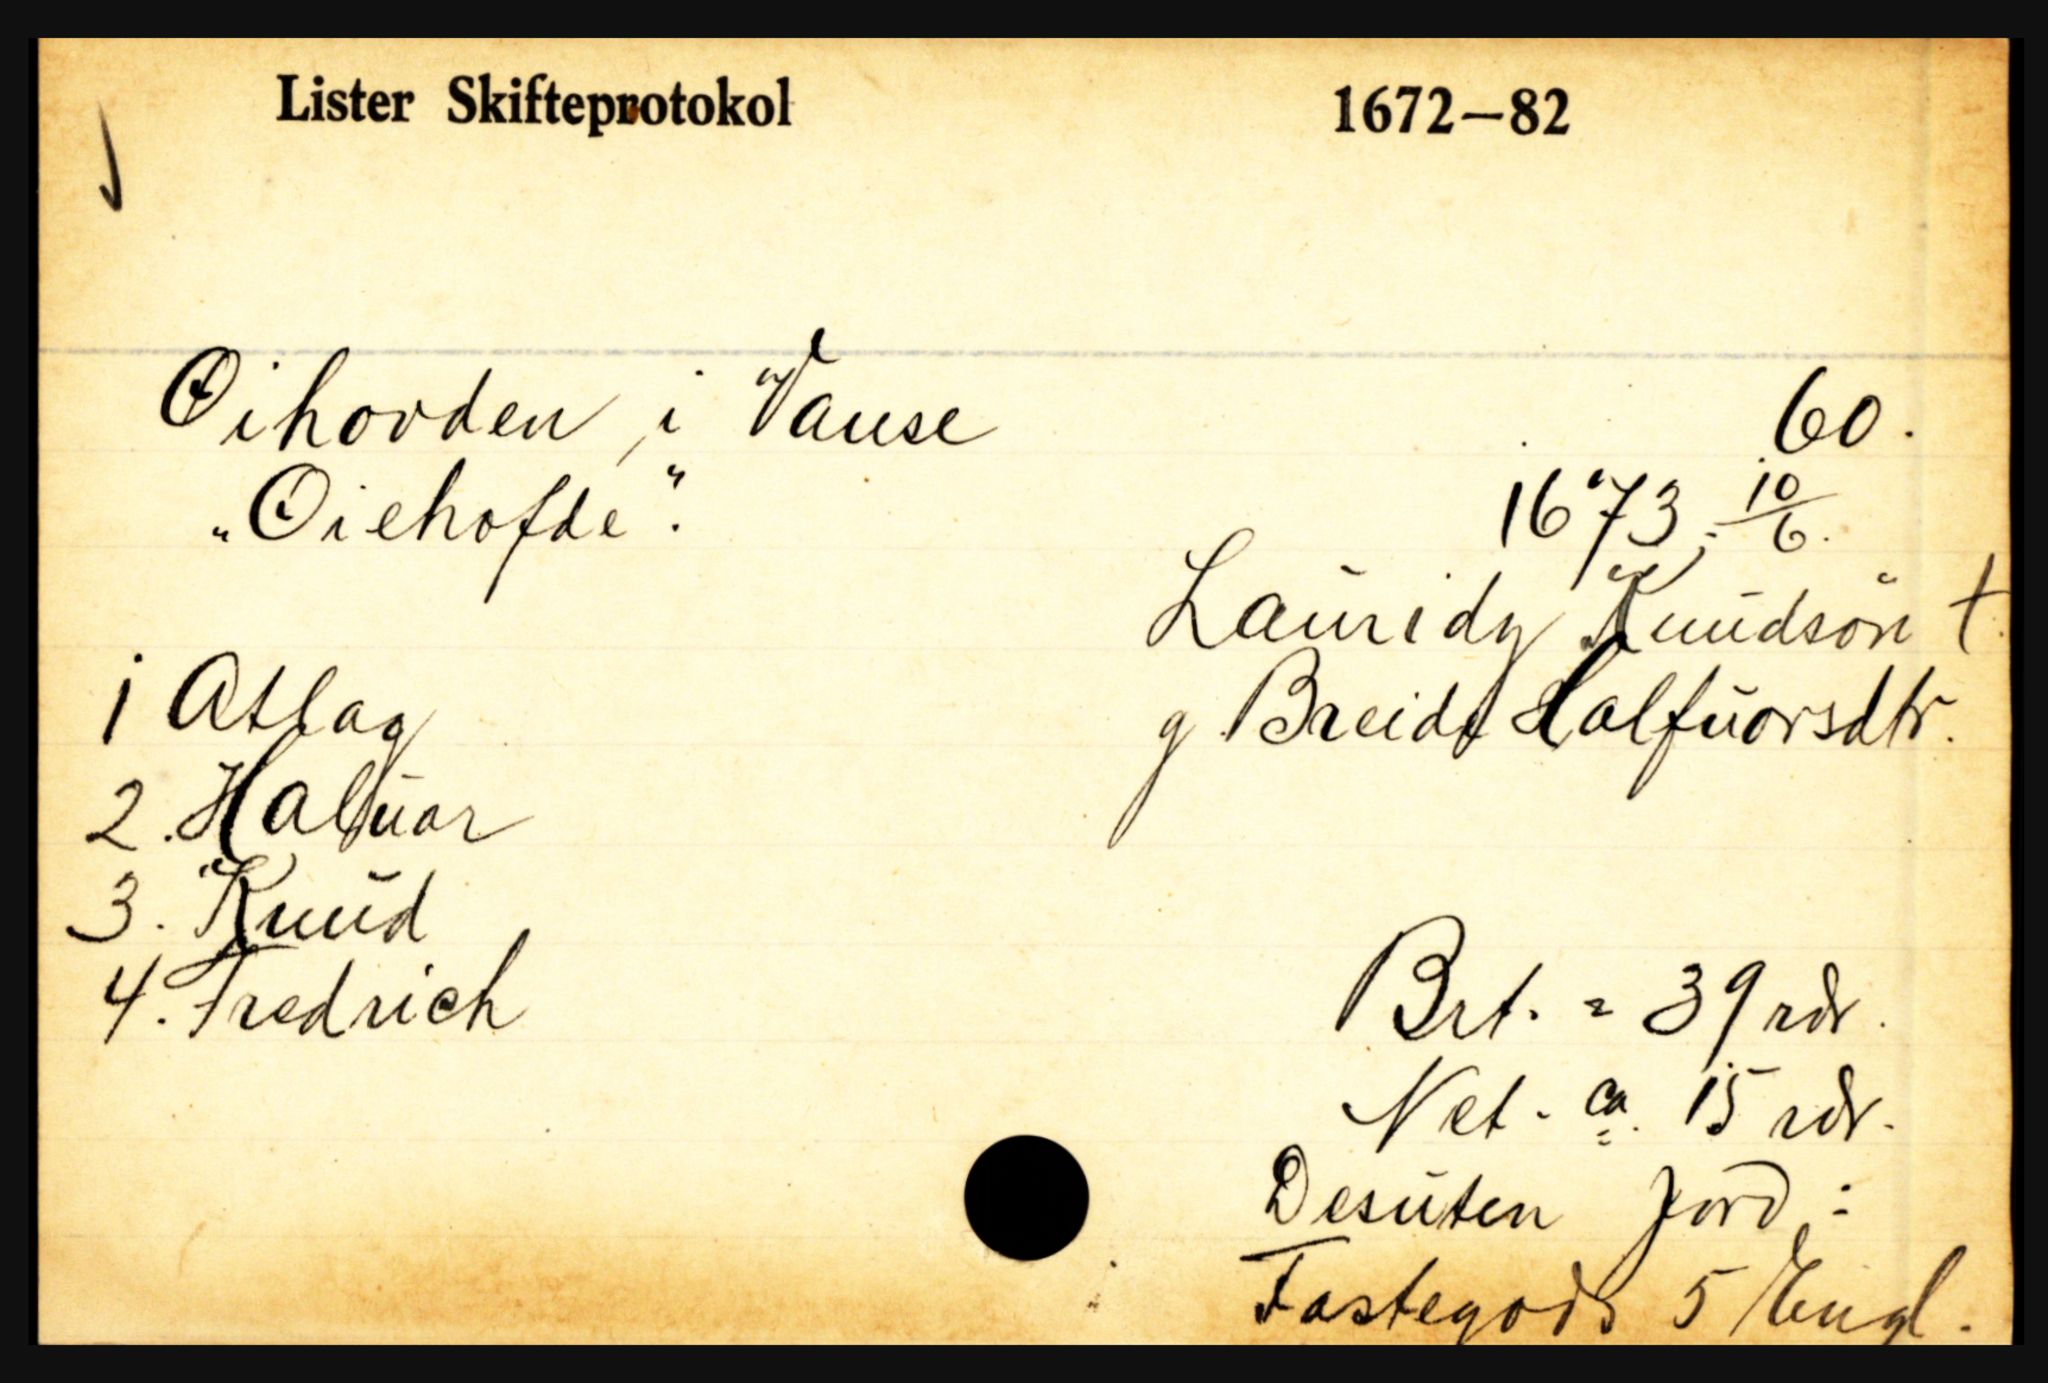 Lister Skifteprotokol 1672–82
Øihovden, i Vanse
60.
„Oiehofde".
1673 - 10/6.
Lauridz Knudsön †.
g. Breidt Halfuorsdtr.
1 Atlag
2. Haluar
3. Knud
4. Fredrich
Brt. = 39 rdr.
Net. ca. 15 rdr.
Desuten Jord:
Fastegods 5 Engl.